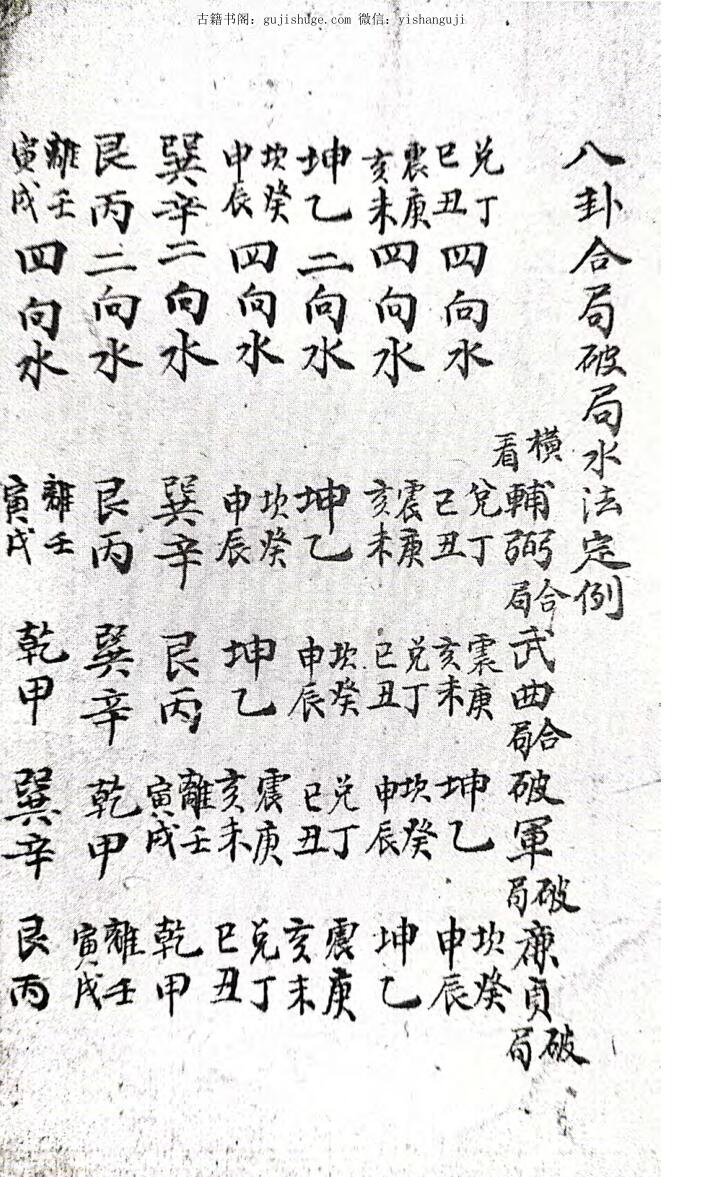 古籍书阁：gujishuge.com 微信：yishanguji
八卦合局破局水法定例
橫看 輔弼合局 武曲合局 破軍破局 廉貞破局
兌丁巳丑四向水 兌丁巳丑 震庚亥未 坤乙 坎癸申辰
震庚亥未四向水 震庚亥未 兌丁巳丑 坎癸申辰 坤乙
坤乙二向水 坤乙 坎癸申辰 兌丁巳丑 震庚亥未
坎癸申辰四向水 坎癸申辰 坤乙 震庚亥未 兌丁巳丑
巽辛二向水 巽辛 艮丙 離壬寅戌 乾甲
艮丙二向水 艮丙 巽辛 乾甲 離壬寅戌
離壬寅戌四向水 離壬寅戌 乾甲 巽辛 艮丙